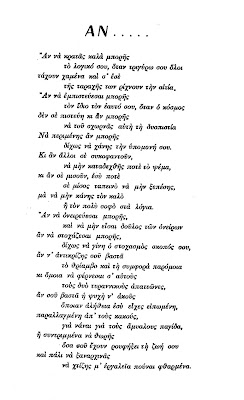 ΑΝ.....
Ἂν νὰ κρατᾶς καλὰ μπορῆς
τὸ λογικό σου, ὅταν τριγύρω σου ὅλοι
τάχουν χαμένα καὶ σ' ἐσὲ
τῆς ταραχῆς των ρίχνουν τὴν αἰτία,
Ἂν νὰ ἐμπιστεύεσαι μπορῆς
τὸν ἴδιο τὸν ἑαυτό σου, ὅταν ὁ κόσμος
δὲν σὲ πιστεύη κι ἂν μπορῆς
νὰ τοῦ σχωρνᾶς αὐτὴ τὴ δυσπιστία
Νὰ περιμένης ἂν μπορῆς
δίχως νὰ χάνης τὴν ὑπομονή σου.
Κι ἂν ἄλλοι σὲ συκοφαντοῦν,
νὰ μὴν καταδεχθῆς ποτὲ τὸ ψέμα,
κι ἂν σὲ μισοῦν, ἐσὺ ποτὲ
σὲ μῖσος ταπεινὸ νὰ μὴν ξεπέσης,
μὰ νὰ μὴν κάνης τὸν καλὸ
ἢ τὸν πολὺ σοφὸ στὰ λόγια.
Ἂν νὰ ὀνειρεύεσαι μπορῆς,
καὶ νὰ μὴν εἶσαι δοῦλος τῶν ὀνείρων
ἂν νὰ στοχάζεσαι μπορῆς,
δίχως νὰ γίνη ὁ στοχασμὸς σκοπός σου,
ἂν ν' ἀντικρίζης σοῦ βαστᾶ
τὸ θρίαμβο καὶ τὴ συμφορὰ παρόμοια
κι ὅμοια νὰ φέρνεσαι σ' αὐτοὺς
τοὺς δυὸ τυραννικοὺς ἀπατεῶνες,
ἂν σοῦ βαστᾶ ἡ ψυχή ν' ἀκοῦς
ὅποιαν ἀλήθεια ἐσὺ εἶχες εἰπωμένη,
παραλλαγμένη ἀπ' τοὺς κακούς,
γιὰ νἆναι γιὰ τοὺς ἄμυαλους παγίδα,
ἢ συντριμμένα νὰ θωρῆς
ὅσα σοῦ ἔχουν ρουφήξει τὴ ζωή σου
καὶ πάλι νὰ ξαναρχινᾶς
νὰ χτίζης μ' ἐργαλεῖα ποὖναι φθαρμένα.